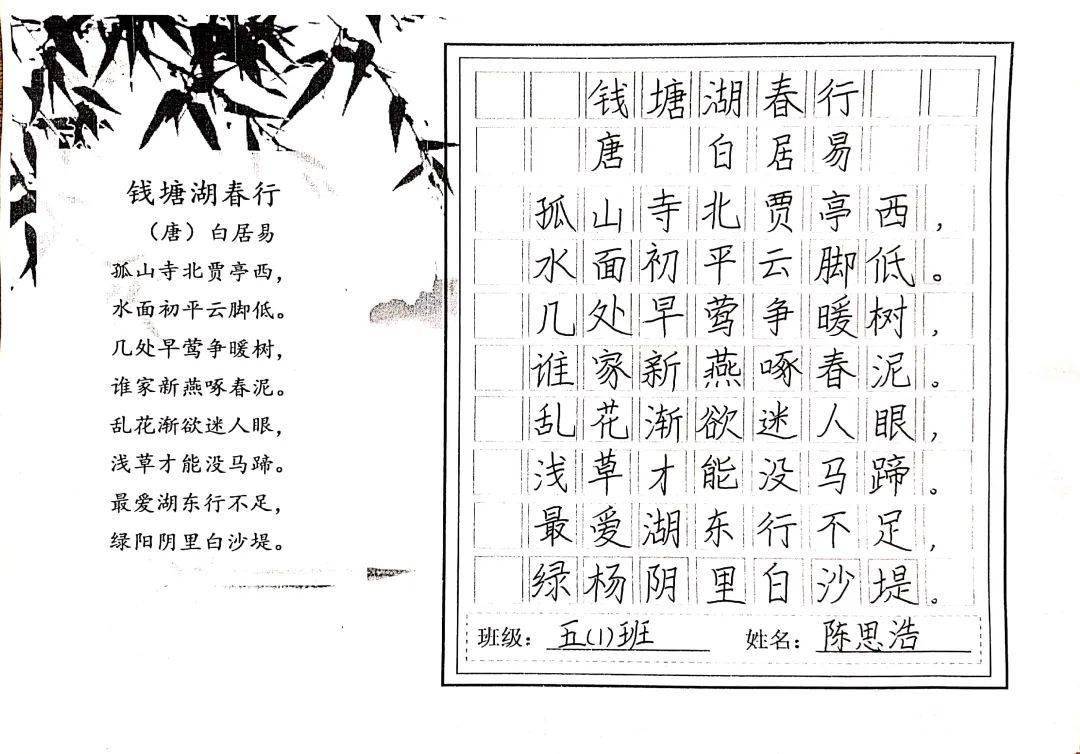 钱塘湖春行
（唐）白居易
孤山寺北贾亭西，
水面初平云脚低。
几处早莺争暖树，
谁家新燕啄春泥。
乱花渐欲迷人眼，
浅草才能没马蹄。
最爱湖东行不足，
绿阳阴里白沙堤。
钱塘湖春行
唐 白居易
孤山寺北贾亭西，
水面初平云脚低。
几处早莺争暖树，
谁家新燕啄春泥。
乱花渐欲迷人眼，
浅草才能没马蹄。
最爱湖东行不足，
绿杨阴里白沙堤。
班级：五(1)班 姓名：陈思浩